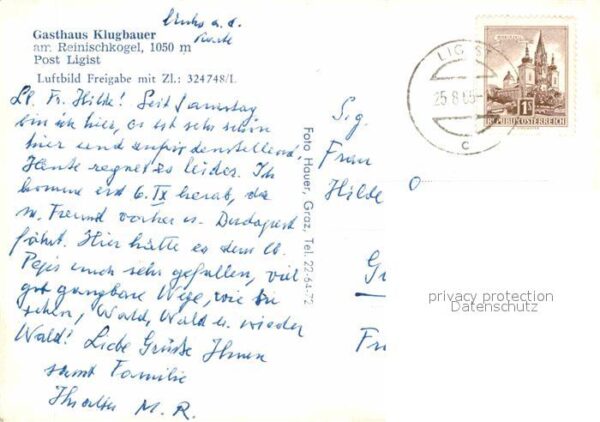 Links a. d.
Gasthaus Klugbauer
am Reinischkogel, 1050 m
Post Ligist
Luftbild Freigabe mit Zl.: 324748/I.
Lb. Fr. Hilde! Seit Samstag
bin ich hier, es ist sehr schön
hier und zufriedenstellend.
Heute regnet es leider. Ich
komme erst 6. IX herab, da
m. Freund vorher n. Budapest
fährt. Hier hätte es dem lb.
Pepis auch sehr gefallen, viel
gut gangbare Wege, wie Sie
sehen, Wald, Wald u. wieder
Wald! Liebe Grüße Ihnen
samt Familie
M. R.
Foto Hauer, Graz, Tel. 22-64-72
LIGIST
25.8.65
c
1S
REPUBLIK ÖSTERREICH
Sig.
Frau
Hilde O
G
Fr
privacy protection
Datenschutz